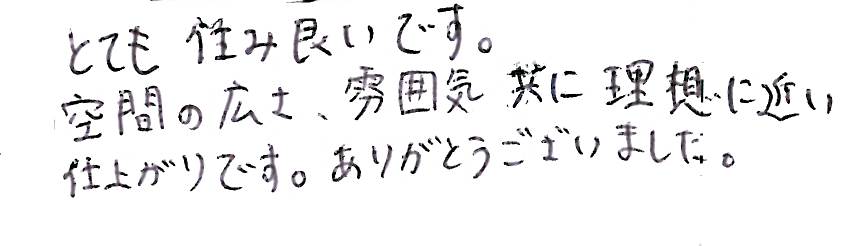 とても 住み良いです。
空間の広さ、雰囲気 共に 理想に近い
仕上がりです。ありがとうございました。